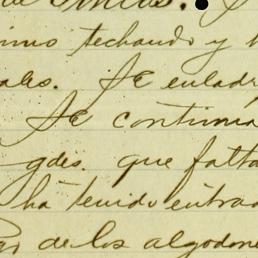 techando y
ales. Se enladr
Se continua
gdes. que falta
ha tenido entrad
de los algodone